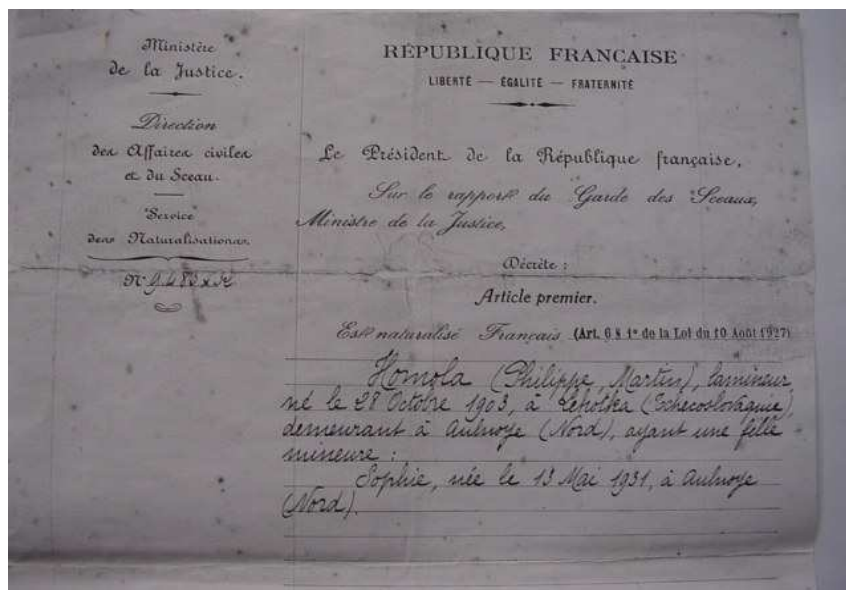 Ministère
de la Justice.
Direction
des Affaires civiles
et du Sceau.
Service
des Naturalisations.
RÉPUBLIQUE FRANÇAISE
LIBERTÉ — ÉGALITÉ — FRATERNITÉ
Le Président de la République française,
Sur le rapport du Garde des Sceaux,
Ministre de la Justice,
Décrète :
Article premier.
Est naturalisé Français (Art. 6 § 1º de la Loi du 10 Août 1927)
Homola (Philippe, Martin), lamineur,
né le 28 Octobre 1903, à (Tchécoslovaquie),
demeurant à Aulnoye (Nord), ayant une fille
mineure :
Sophie, née le 13 Mai 1931, à Aulnoye
(Nord).